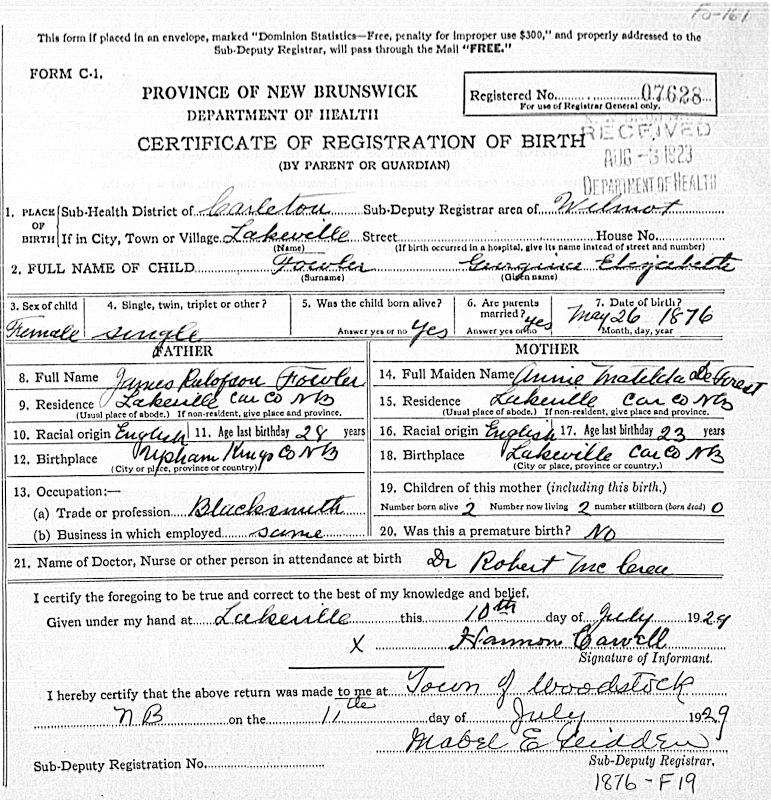 Fo-161
This form if placed in an envelope, marked "Dominion Statistics—Free, penalty for improper use $300," and properly addressed to the
Sub-Deputy Registrar, will pass through the Mail "FREE."
FORM C-1.
PROVINCE OF NEW BRUNSWICK
DEPARTMENT OF HEALTH
Registered No. 07628
For use of Registrar General only.
CERTIFICATE OF REGISTRATION OF BIRTH
(BY PARENT OR GUARDIAN)
RECEIVED
AUG -3 1929
DEPARTMENT OF HEALTH
1. PLACE OF BIRTH Sub-Health District of Carleton Sub-Deputy Registrar area of Wilmot
If in City, Town or Village Lakeville Street House No.
(Name) (If birth occurred in a hospital, give its name instead of street and number)
2. FULL NAME OF CHILD Fowler Georgine Elizabeth
(Surname) (Given name)
3. Sex of child 4. Single, twin, triplet or other? 5. Was the child born alive? 6. Are parents married? yes 7. Date of birth?
Female single Answer yes or no Yes Answer yes or no May 26 1876
Month, day, year
FATHER MOTHER
8. Full Name James Rulofson Fowler 14. Full Maiden Name Annie Matilda DeForest
9. Residence Lakeville Car Co NB 15. Residence Lakeville Car Co NB
(Usual place of abode.) If non-resident, give place and province. (Usual place of abode.) If non-resident, give place and province.
10. Racial origin English 11. Age last birthday 28 years 16. Racial origin English 17. Age last birthday 23 years
12. Birthplace Upham Kings Co NB 18. Birthplace Lakeville Car Co NB
(City or place, province or country) (City or place, province or country.)
13. Occupation:— 19. Children of this mother (including this birth.)
(a) Trade or profession Blacksmith Number born alive 2 Number now living 2 number stillborn (born dead) 0
(b) Business in which employed same 20. Was this a premature birth? No
21. Name of Doctor, Nurse or other person in attendance at birth Dr Robert
I certify the foregoing to be true and correct to the best of my knowledge and belief.
Given under my hand at Lakeville this 10th day of July 1929
X Hannon
Signature of Informant.
I hereby certify that the above return was made to me at Town of Woodstock
NB on the 11th day of July 1929
Mabel E
Sub-Deputy Registration No. Sub-Deputy Registrar.
1876-F19